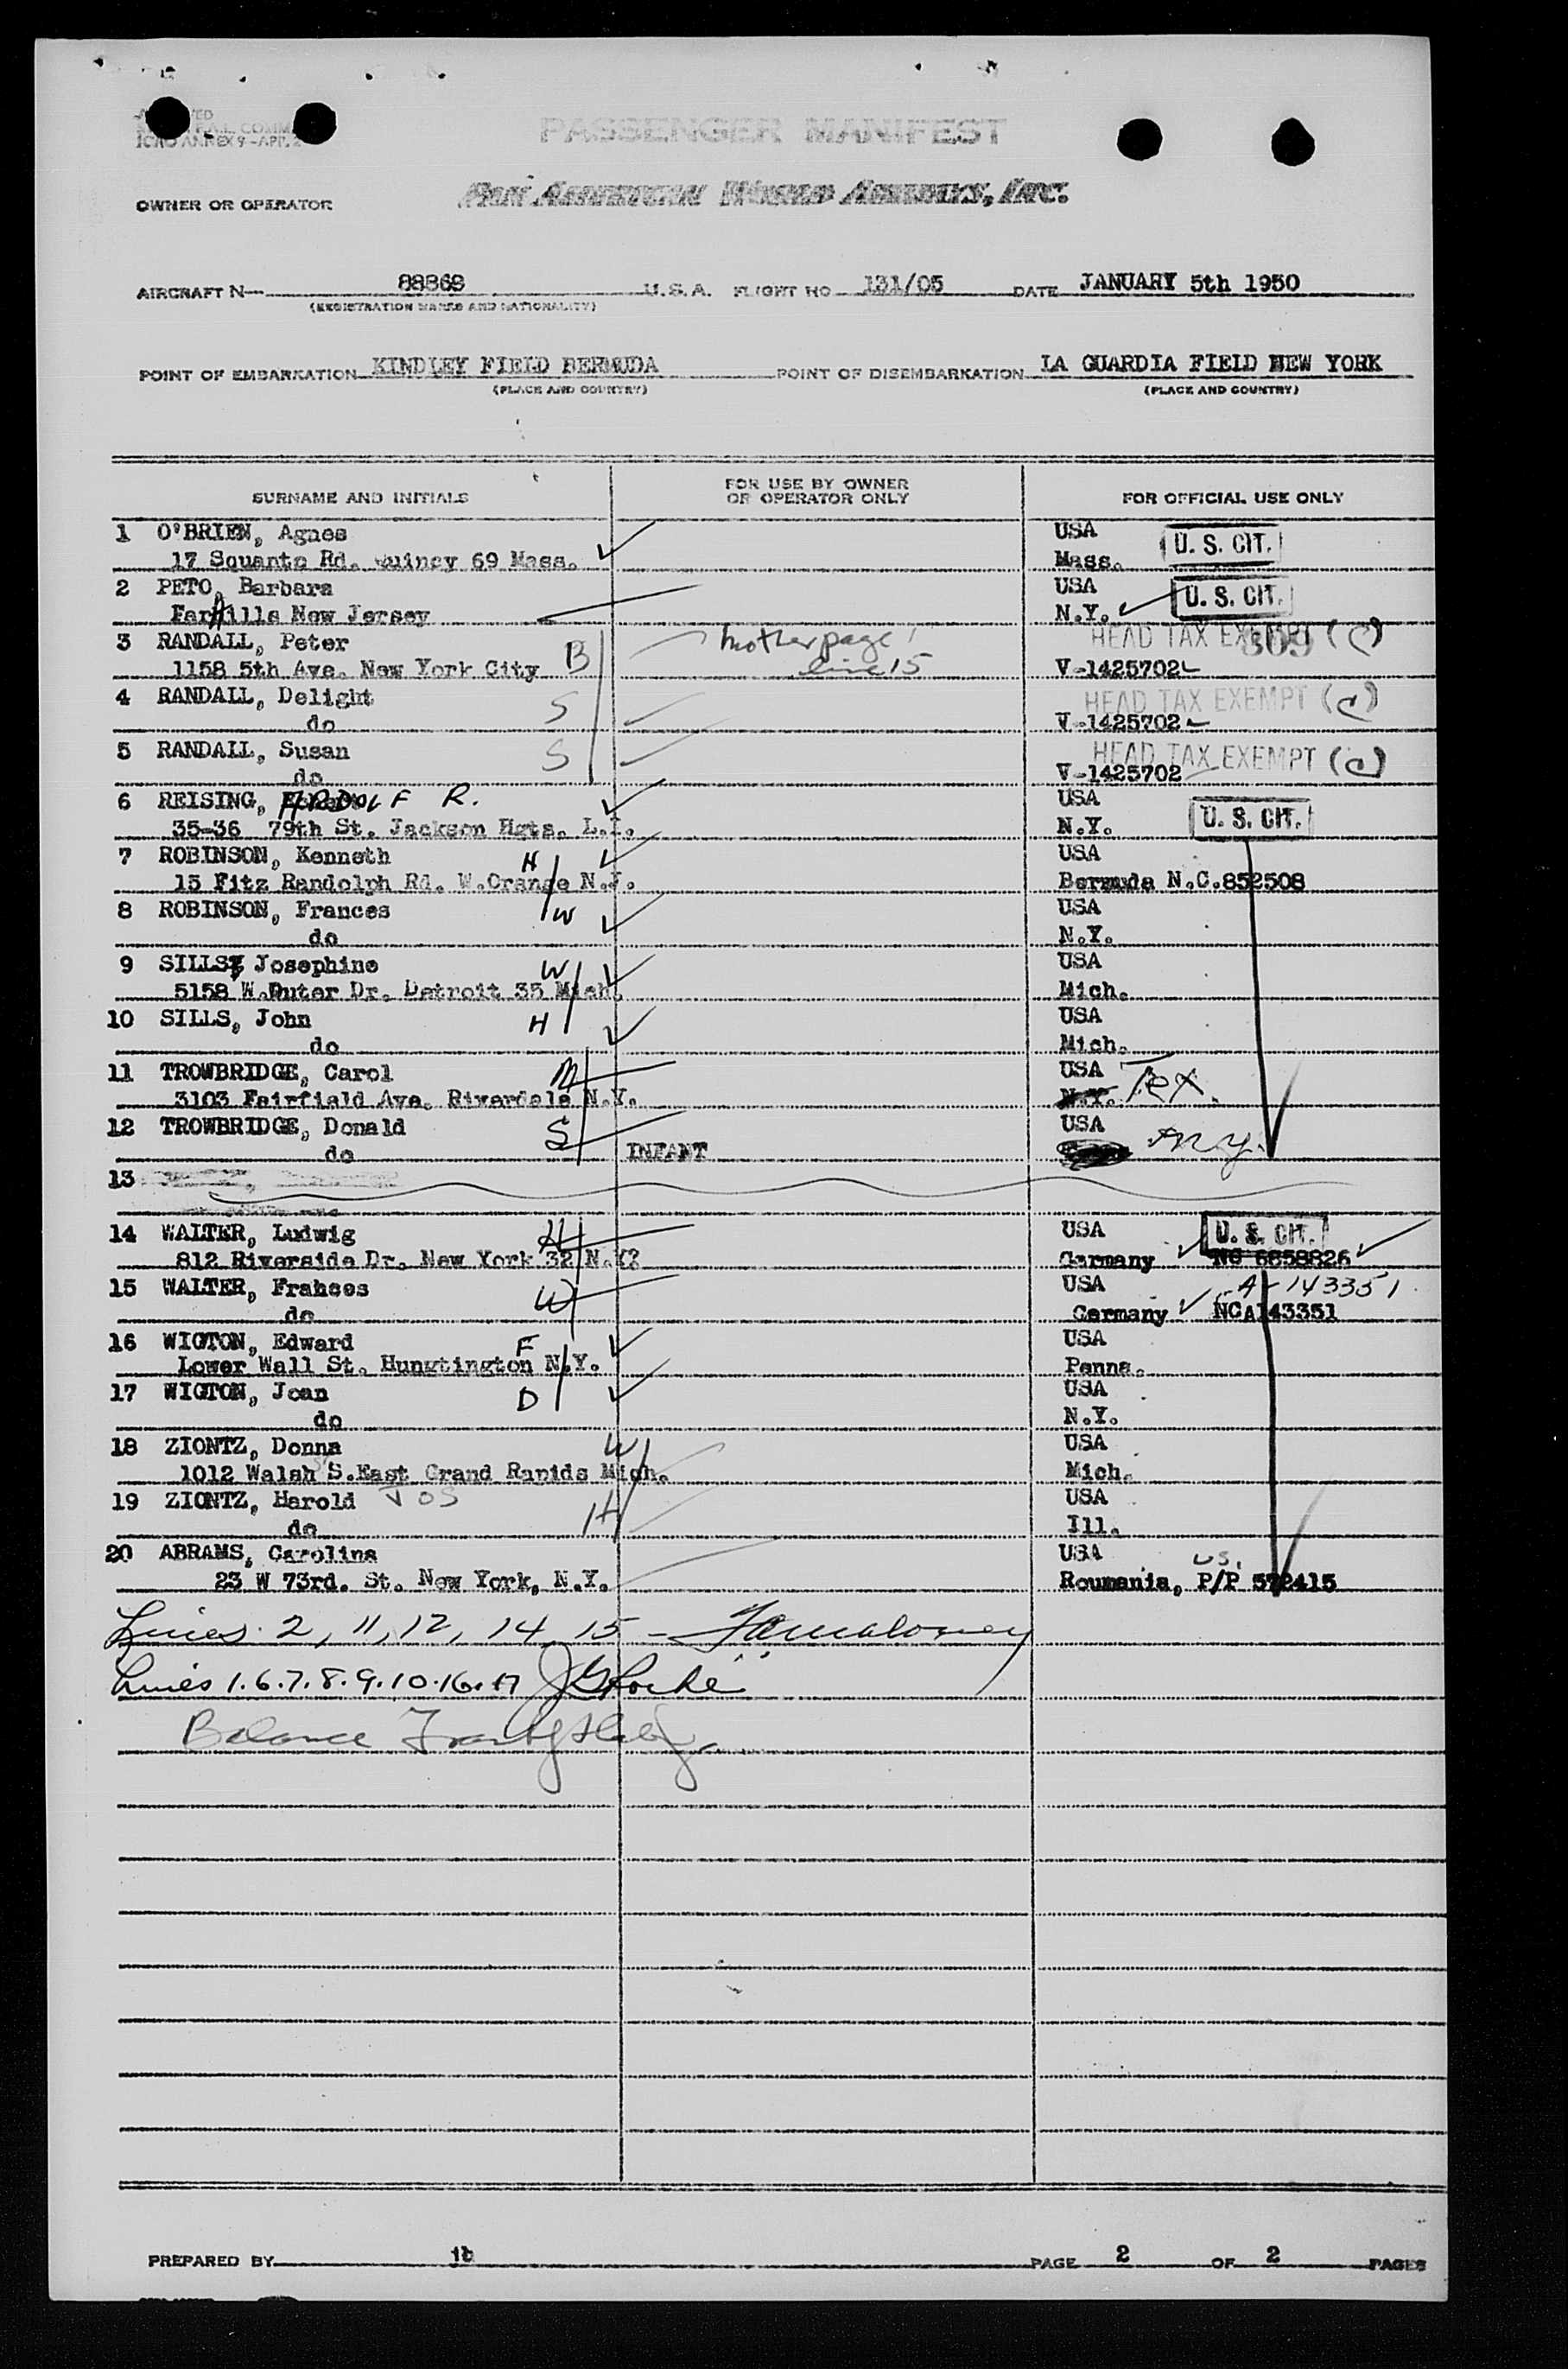 PASSENGER MANIFEST
ICAO ANNEX 9-APP. 2
OWNER OR OPERATOR PAN AMERICAN WORLD AIRWAYS, INC.
AIRCRAFT N- 88868 U.S.A. FLIGHT NO 131/05 DATE JANUARY 5th 1950
(REGISTRATION MARKS AND NATIONALITY)
POINT OF EMBARKATION KINDLEY FIELD BERMUDA POINT OF DISEMBARKATION LA GUARDIA FIELD NEW YORK
(PLACE AND COUNTRY) (PLACE AND COUNTRY)
SURNAME AND INITIALS FOR USE BY OWNER OR OPERATOR ONLY FOR OFFICIAL USE ONLY
1 O'BRIEN, Agnes USA U. S. CIT.
17 Squanto Rd. Quincy 69 Mass. Mass.
2 PETO, Barbara USA U. S. CIT.
Far Hills New Jersey N.Y.
3 RANDALL, Peter B Mother page 1 HEAD TAX EXEMPT (C) 309
1158 5th Ave. New York City line 15 V-1425702
4 RANDALL, Delight S HEAD TAX EXEMPT (C)
do V-1425702
5 RANDALL, Susan S HEAD TAX EXEMPT (C)
do V-1425702
6 REISING, R. USA U. S. CIT.
35-36 79th St. Jackson Hgts. L.I. N.Y.
7 ROBINSON, Kenneth H USA
15 Fitz Randolph Rd. W.Orange N.J. Bermuda N.C.852508
8 ROBINSON, Frances W USA
do N.Y.
9 SILLS, Josephine W USA
5158 W.Outer Dr. Detroit 35 Mich. Mich.
10 SILLS, John H USA
do Mich.
11 TROWBRIDGE, Carol M USA Tex.
3103 Fairfiald Ave. Riverdale N.Y. N.Y.
12 TROWBRIDGE, Donald S USA
do INFANT N.Y.
13
14 WALTER, Ludwig H USA U. S. CIT.
812 Riverside Dr. New York 32 N.Y? Germany NC 6858826
15 WALTER, Frances W USA A-143351
do Germany NCA143351
16 WIGTON, Edward F USA
Lower Wall St. Hungtington N.Y. Penna.
17 WIGTON, Joan D USA
do N.Y.
18 ZIONTZ, Donna W USA
1012 Walsh St S.East Grand Rapids Mich. Mich.
19 ZIONTZ, Harold JOS H USA
do Ill.
20 ABRAMS, Carolina USA U.S.
23 W 73rd. St. New York, N.Y. Roumania, P/P 572415
Lines 2, 11, 12, 14 15 -
Lines 1.6.7.8.9.10.16.17
Balance
PREPARED BY PAGE 2 OF 2 PAGES